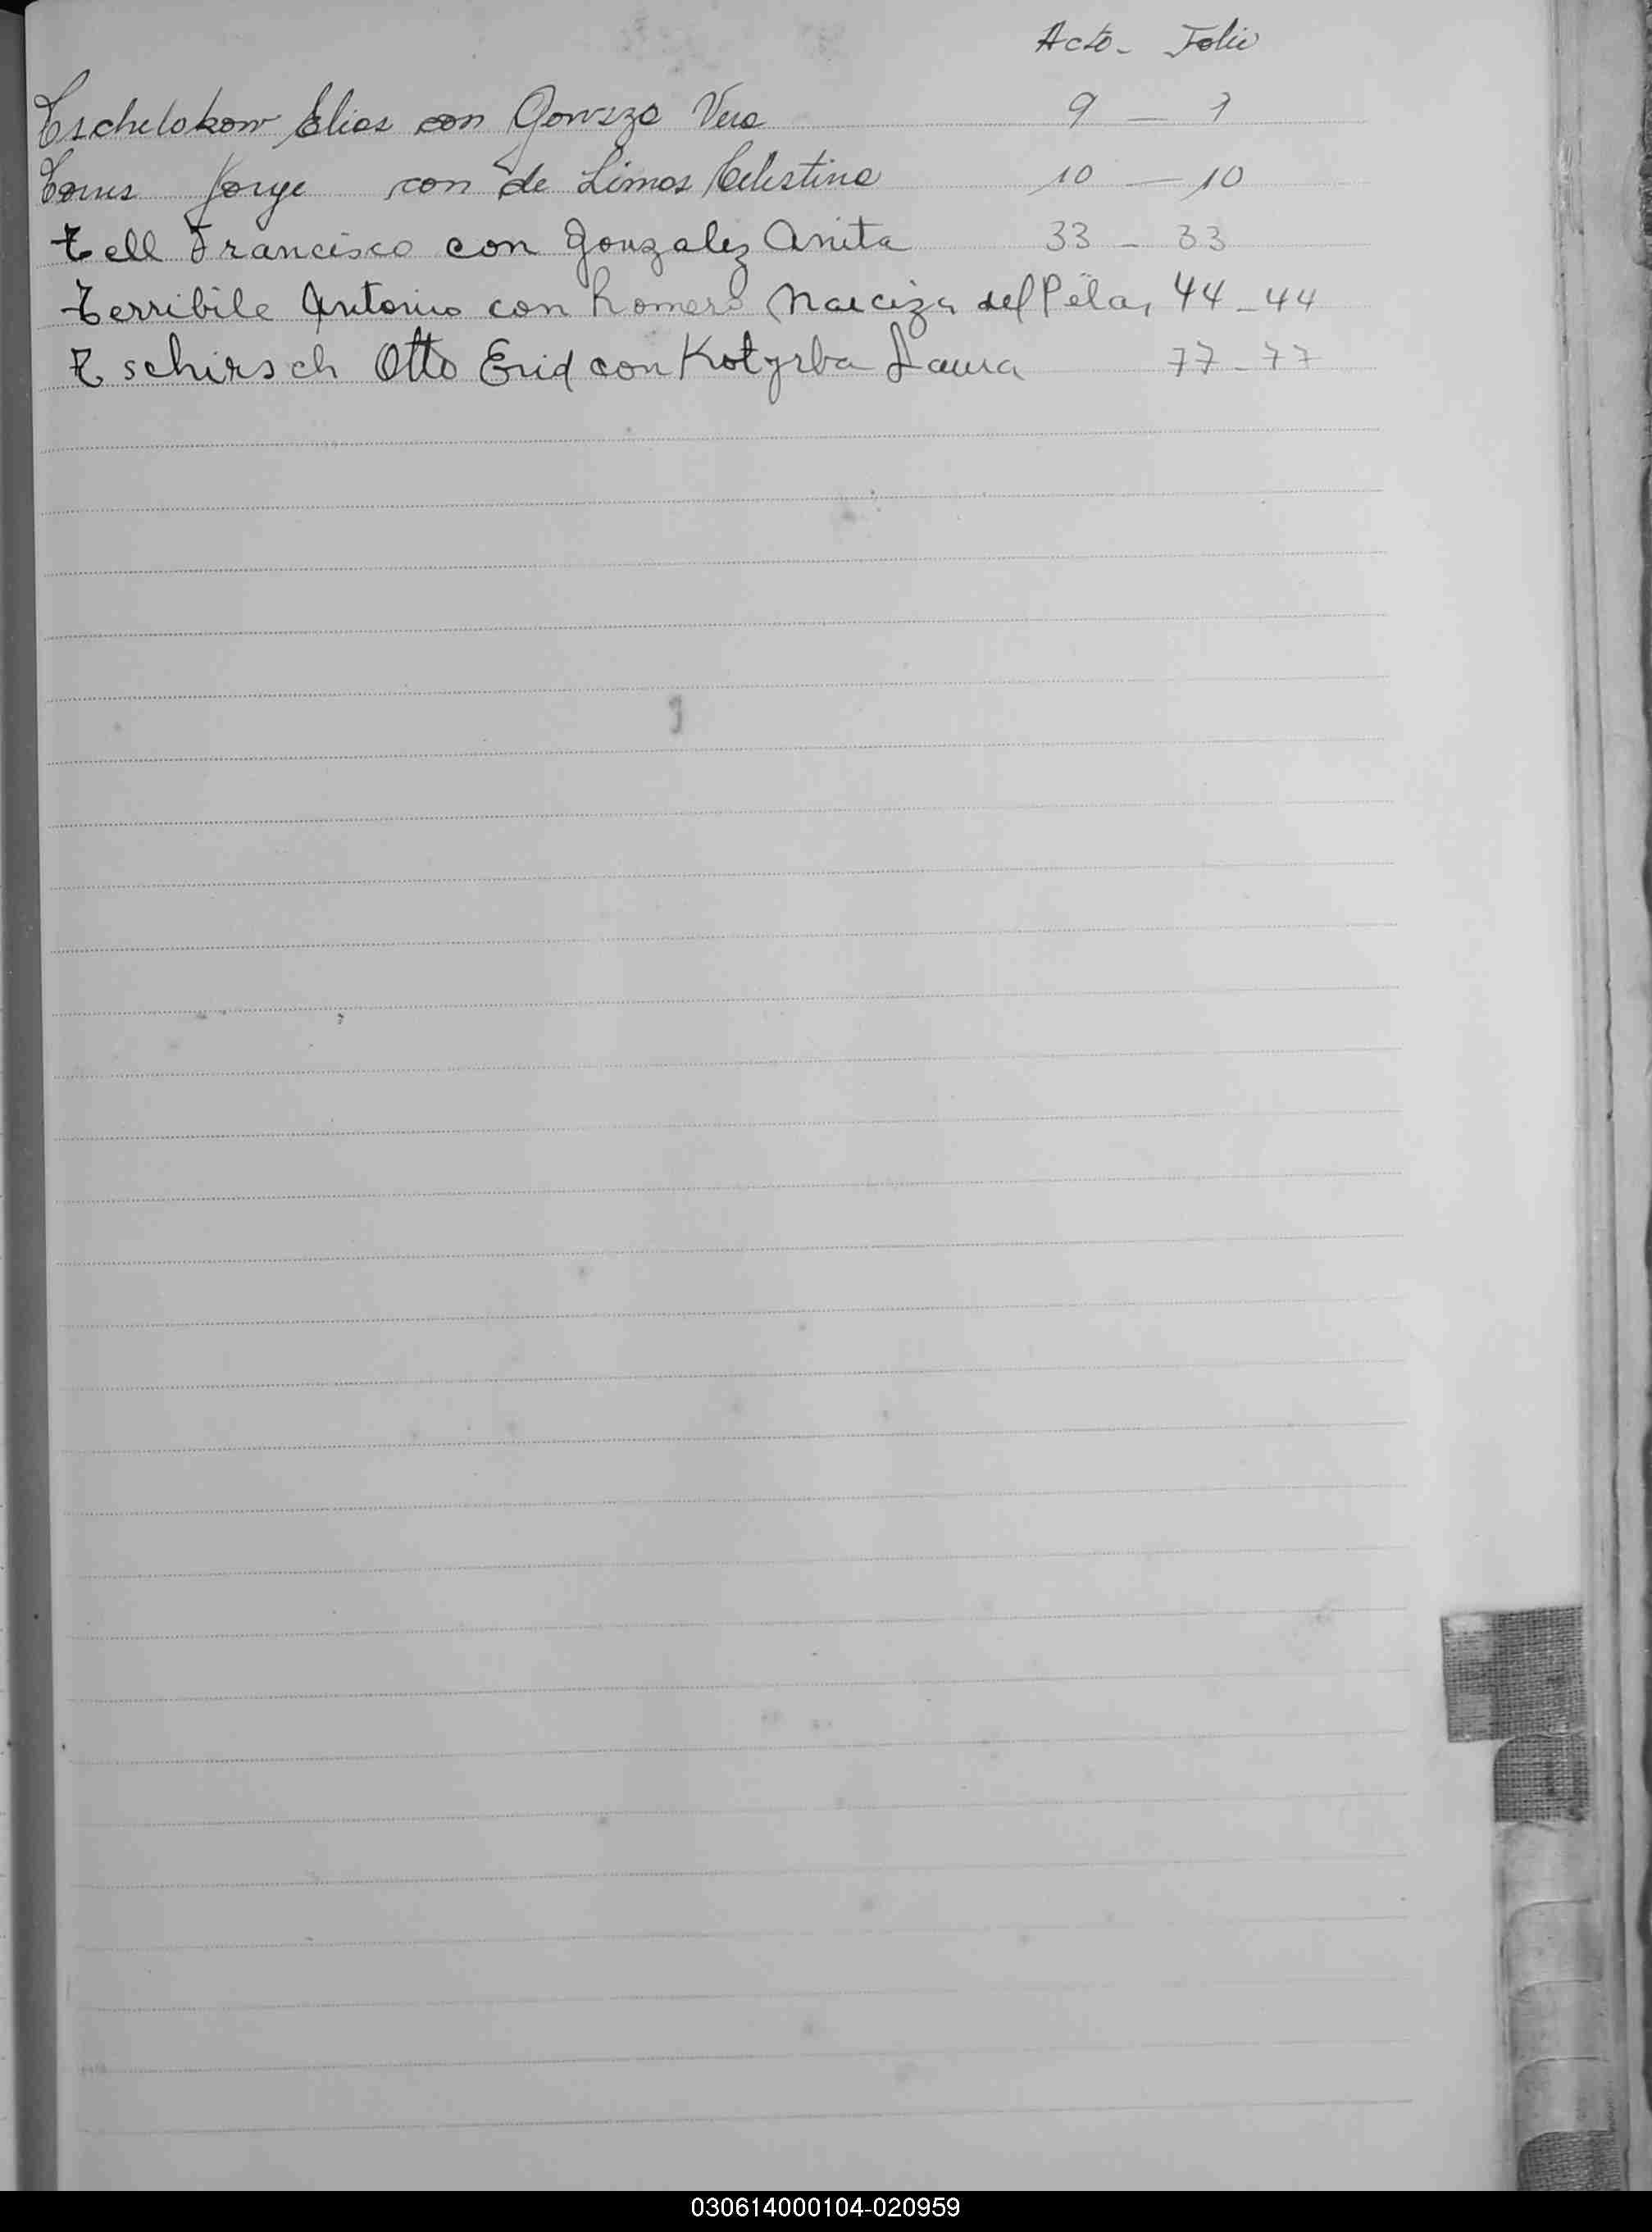 Acto - Folio
Tschelokow Elias con Gonszo Vera 9 — 9
Torus Jorge con de Limos Celestina 10 — 10
Tell Francisco con Gonzalez Anita 33 - 33
Terribile Antonio con Romero Narciza del Pilar 44 - 44
Tschirsch Otto Erid con Kotyrba Laura 77 - 77
030614000104-020959